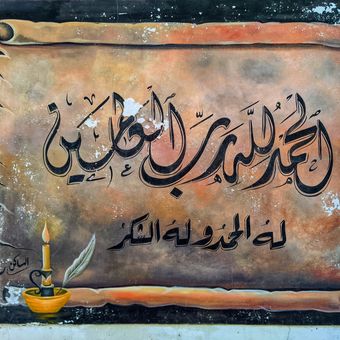 الحمد لله رب العلمين
له الحمد وله الشكر